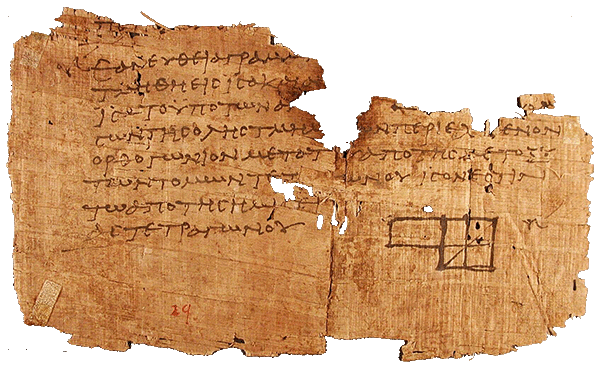 ΕΑΝ ΕΥΘΕΙΑ ΓΡΑΜΜ
ΤΜΗΘΗ ΕΙΣ ΙΣΑ ΚΑ
ΙΣΑ ΤΟ ΥΠΟ ΤΩΝ Α
ΣΩΝ ΤΗΣ ΟΛΗΣ ΤΜΗΜ ΩΝ ΠΕΡΙΕΧΟΜΕΝΟΝ
ΟΡΘΟΓΩΝΙΟΝ ΜΕΤΑ ΤΟΥ ΑΠΟ ΤΗΣ ΜΕΤΑΞΥ
ΤΩΝ ΤΟΜΩΝ ΤΕΤ ΩΝΟΥ ΙΣΟΝ ΕΣΤΙΝ
ΤΩ ΑΠΟ ΤΗΣ ΗΜΙΣΕΙ
ΑΣ ΤΕΤΡΑΓΩΝΟΥ
29